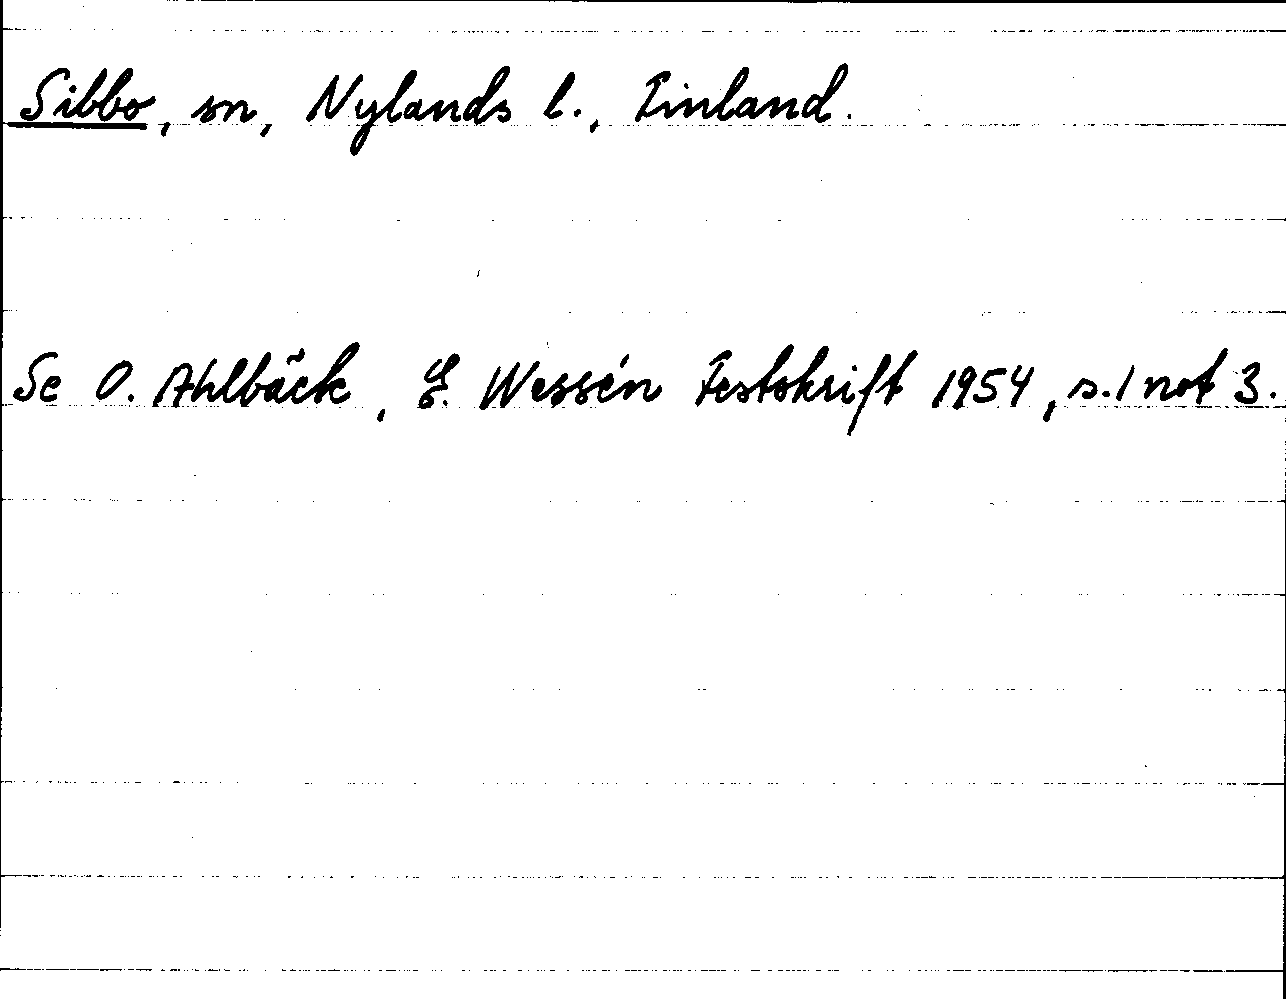 Sibbo, sn, Nylands l., Finland.
Se O. Ahlbäck, E. Wessén Festskrift 1954, s. 1 not 3.